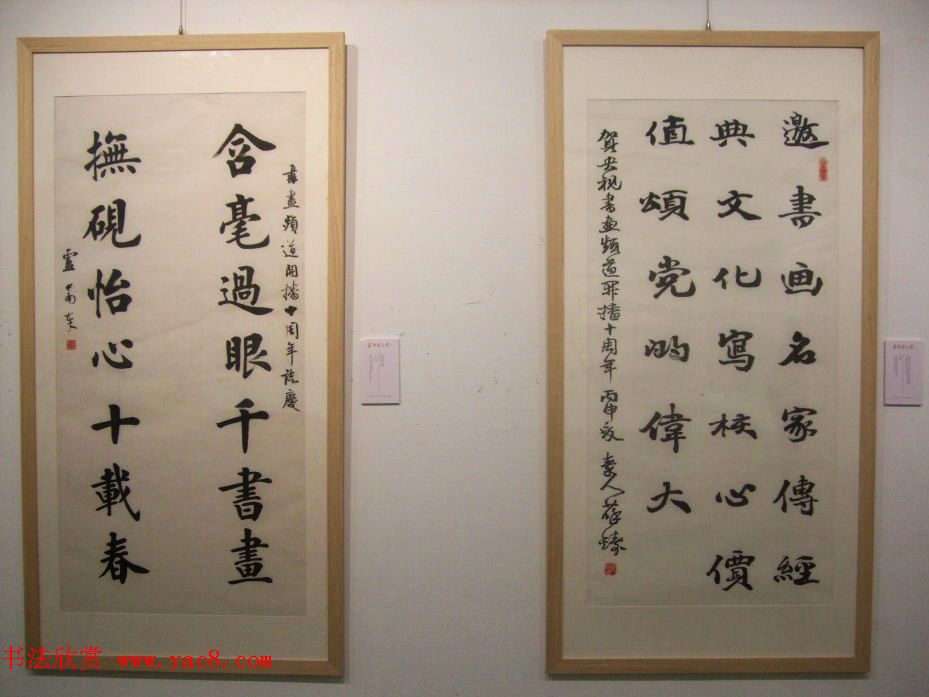 書畫頻道開播十周年誌慶
含毫過眼千書畫
撫硯怡心十載春
邀書画名家傳經
典文化寫核心價
值頌党的偉大
賀央视書画频道開播十周年 丙申夏 人薛臻
书法欣赏 www.yac8.com